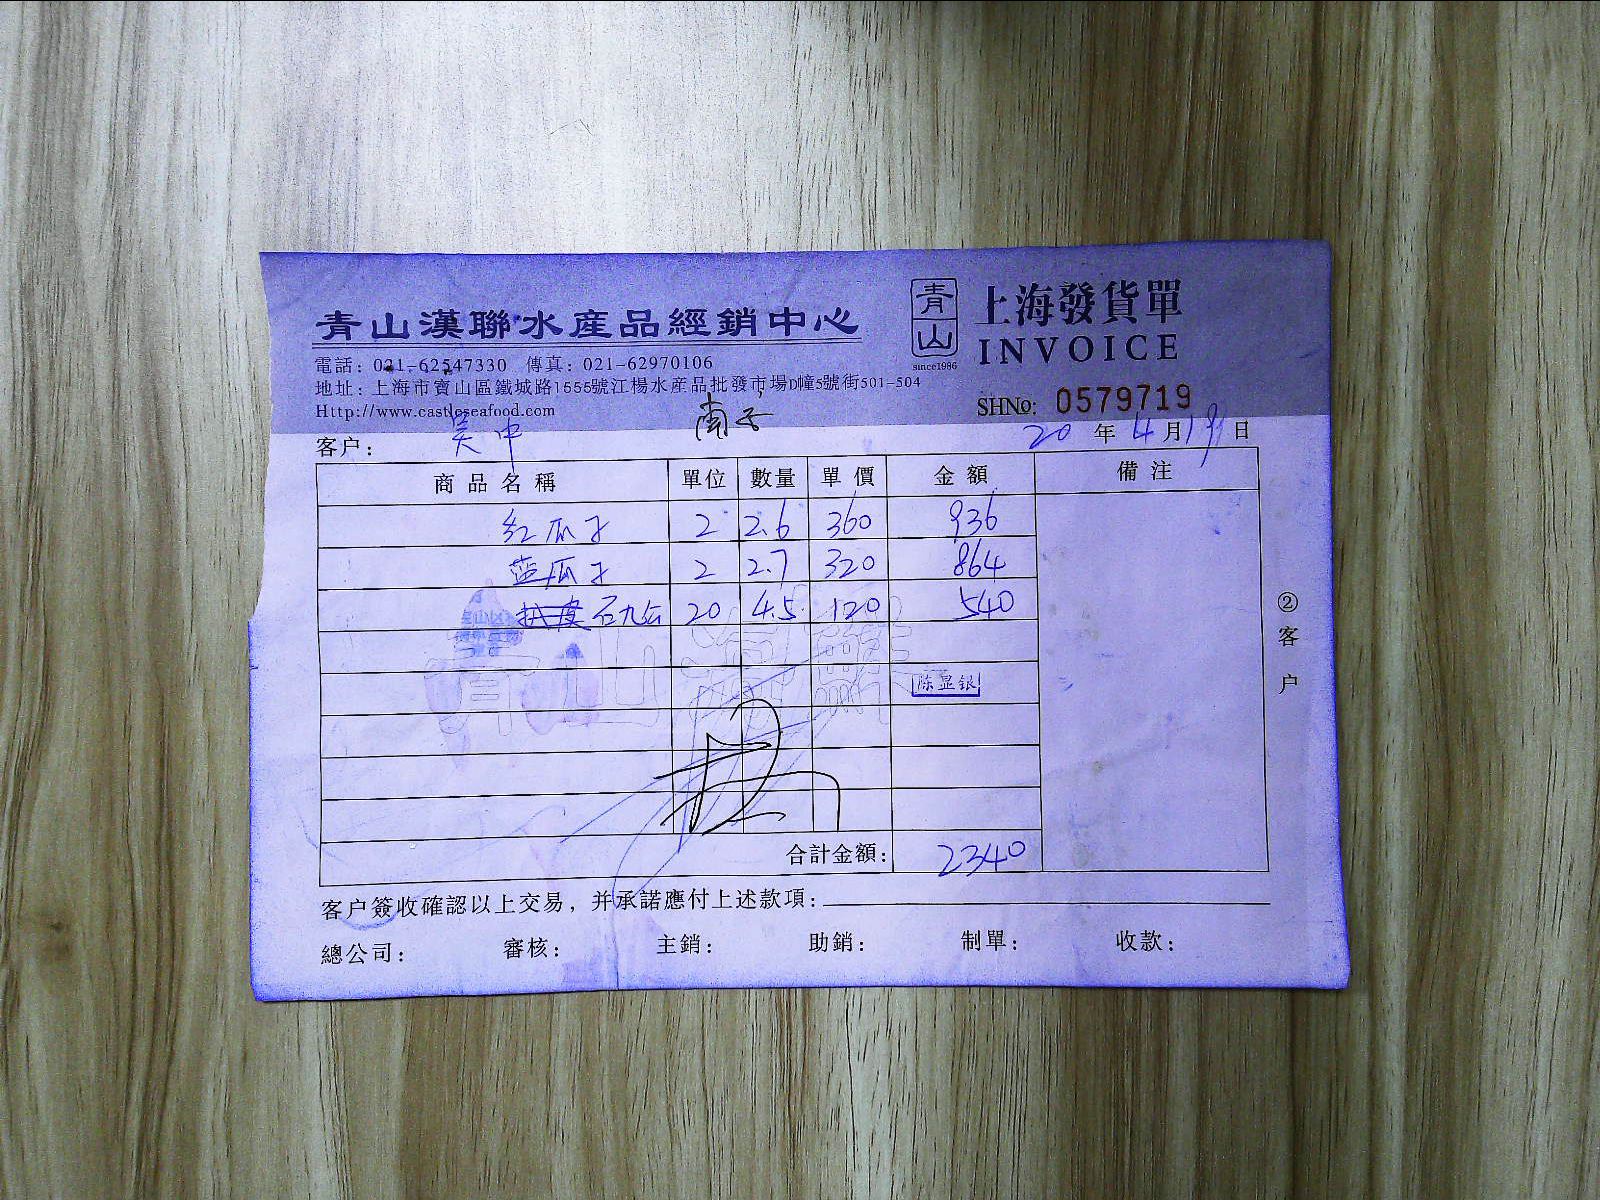 青山漢聯水産品經銷中心
青山
since1986
上海發貨單
INVOICE
電話：021-62547330 傳真：021-62970106
地址：上海市寶山區鐵城路1555號江楊水産品批發市場D幢5號街501-504
Http://www.castleseafood.com
SHNo: 0579719
客户： 吴中
20 年 4 月 19 日
商品名稱 單位 數量 單價 金額 備注
红瓜子 2 2.6 360 936
蓝瓜子 2 2.7 320 864
石九公 20 4.5 120 540
青山漢聯
陈显银
合計金額： 2340
②客户
客户簽收確認以上交易，并承諾應付上述款項：
總公司： 審核： 主銷： 助銷： 制單： 收款：